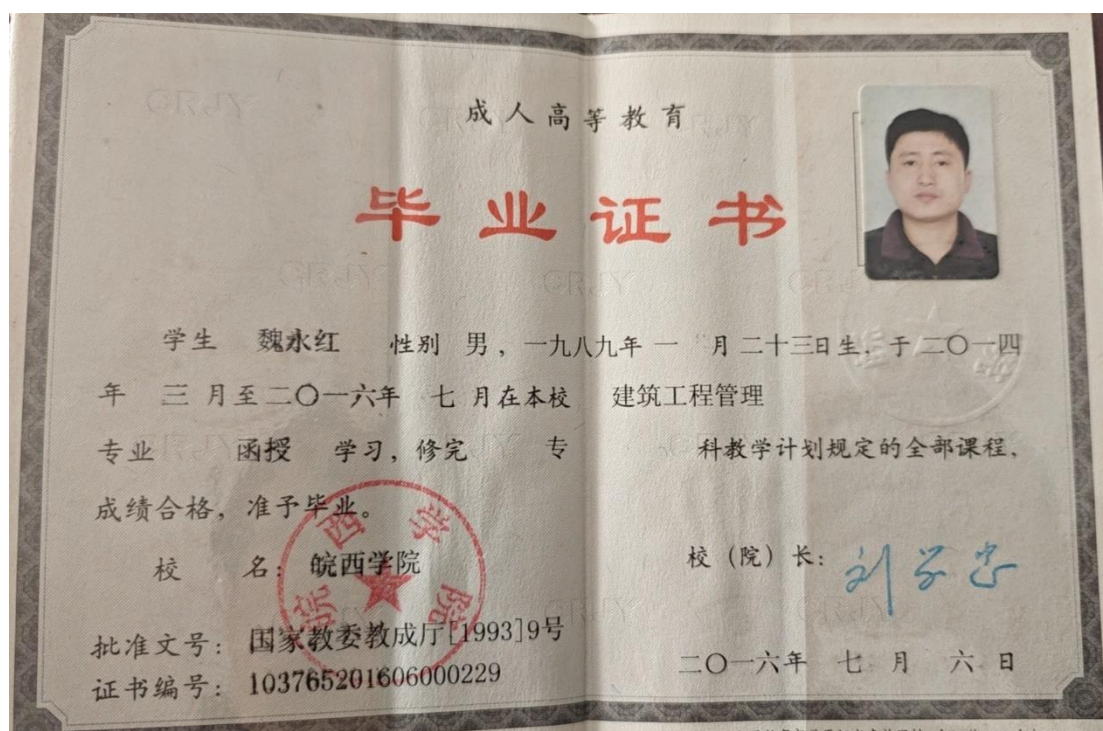 成人高等教育
毕业证书
学生 魏永红 性别 男，一九八九年 一 月 二十三日生，于二〇一四
年 三 月至二〇一六年 七 月在本校 建筑工程管理
专业 函授 学习，修完 专 科教学计划规定的全部课程，
成绩合格，准予毕业。
校 名：皖西学院
校（院）长：刘学忠
批准文号：国家教委教成厅[1993]9号
二〇一六年 七 月 六 日
证书编号：103765201606000229
皖西学院